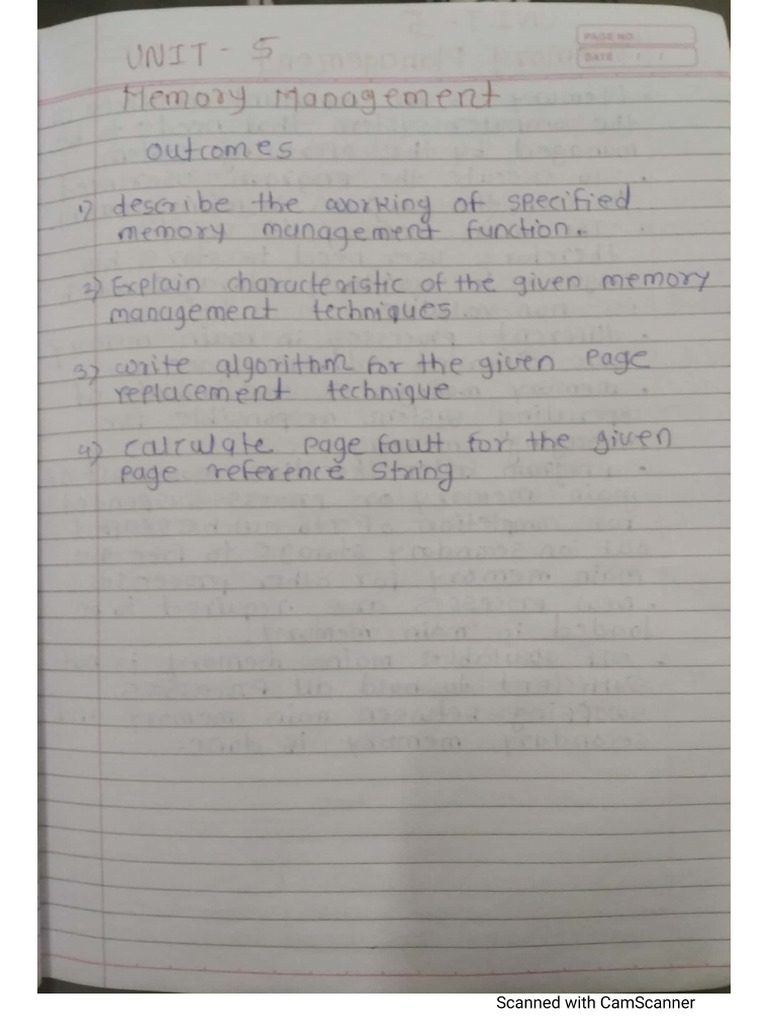 PAGE NO
DATE
UNIT - 5
Memory Management
outcomes
1) describe the working of specified
memory management function.
2) Explain characteristic of the given memory
management techniques.
3) write algorithm for the given Page
replacement technique
4) calculate page fault for the given
page reference string.
Scanned with CamScanner